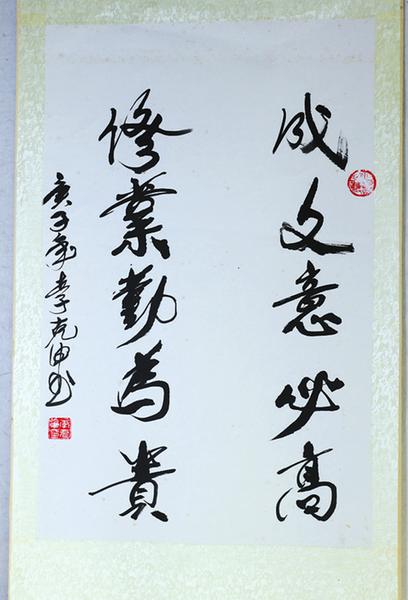 成文意必高
修業勤為貴
庚子年李克由书